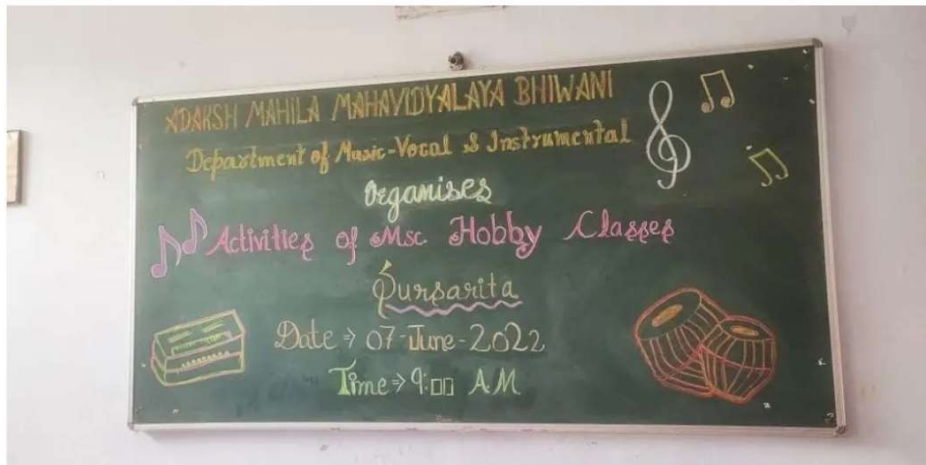 ADARSH MAHILA MAHAVIDYALAYA BHIWANI
Department of Music-Vocal & Instrumental
Organises
Activities of Msc. Hobby Classes
Sursarita
Date → 07-June-2022
Time → 9:00 AM